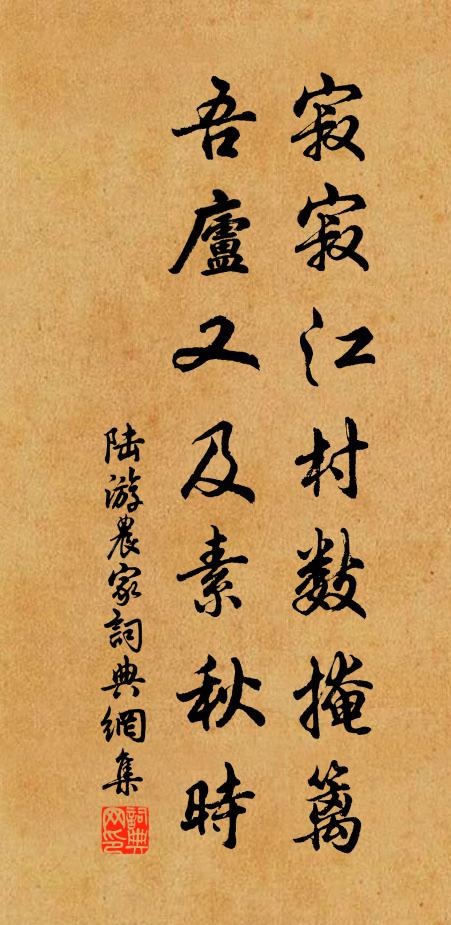 寂寂江村数掩篱
吾廬又及素秋時
陆游農家詞典網集
詞典网印